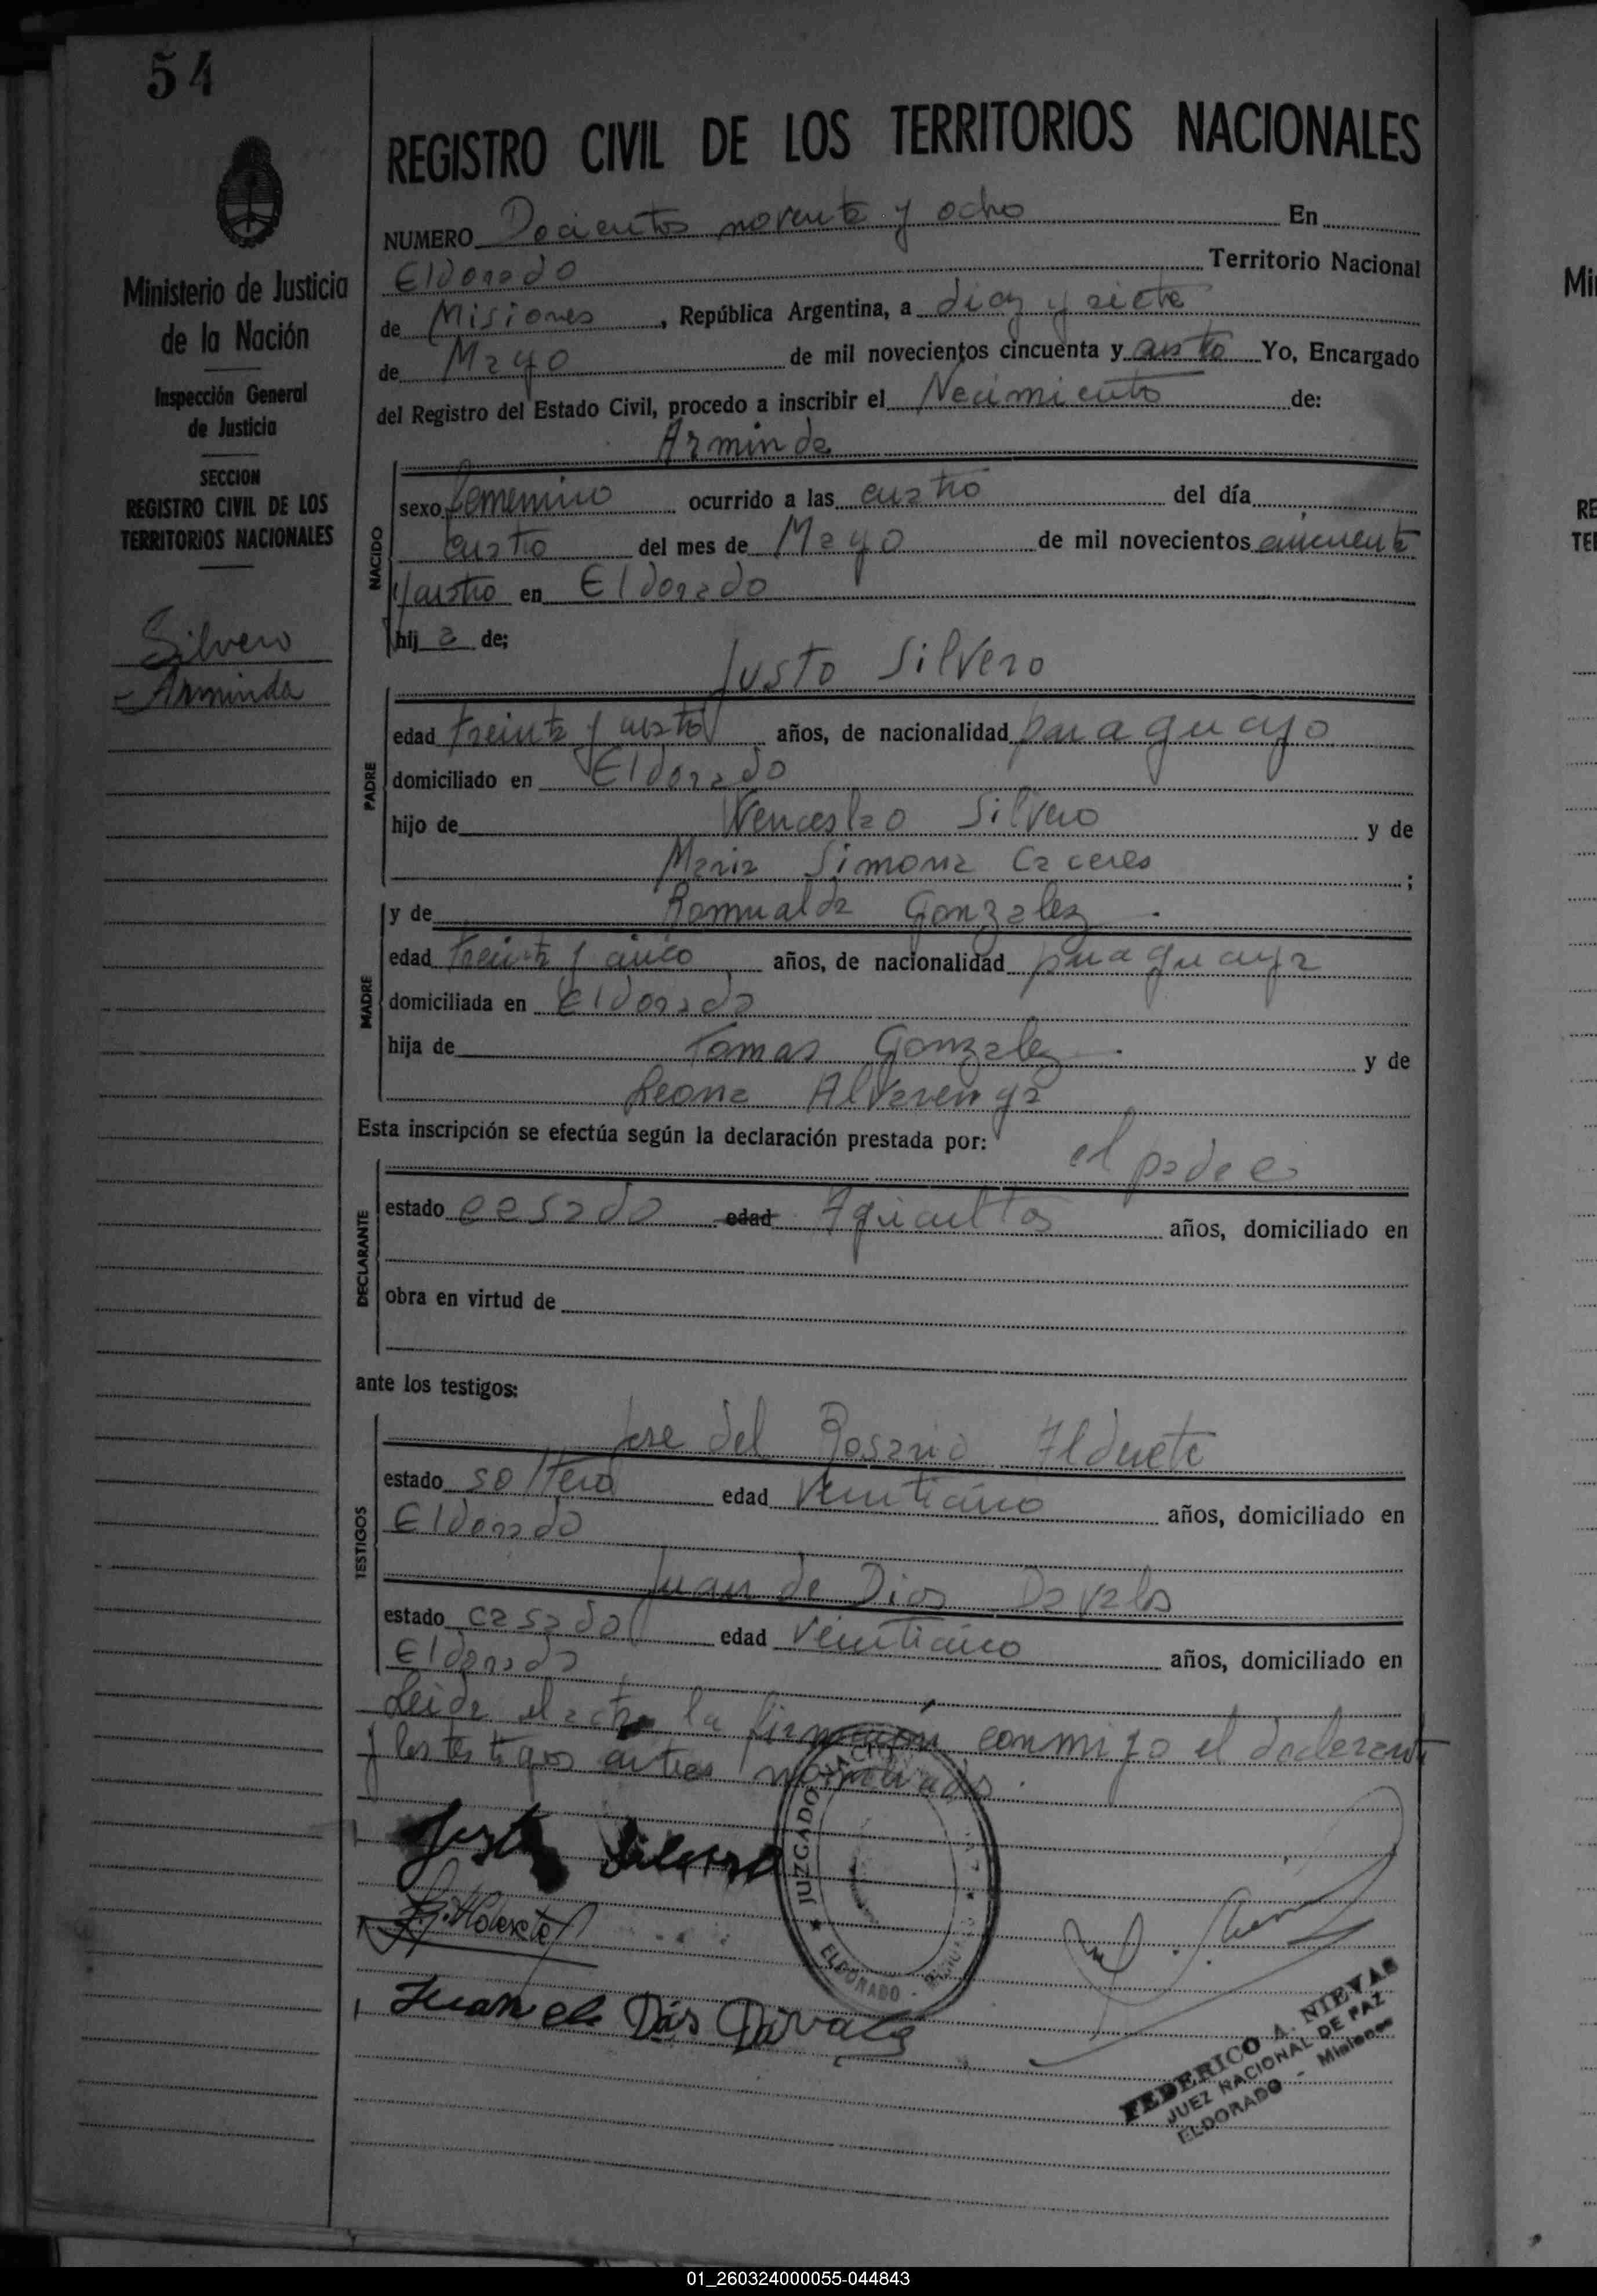 54
REGISTRO CIVIL DE LOS TERRITORIOS NACIONALES
Ministerio de Justicia
de la Nación
Inspección General
de Justicia
SECCION
REGISTRO CIVIL DE LOS
TERRITORIOS NACIONALES
Silvero
Arminda
NUMERO Docientos noventa y ocho En
Eldorado Territorio Nacional
de Misiones, República Argentina, a diez y siete
de Mayo de mil novecientos cincuenta y cuatro Yo, Encargado
del Registro del Estado Civil, procedo a inscribir el Nacimiento de:
Arminda
NACIDO
sexo femenino ocurrido a las cuatro del día
cuatro del mes de Mayo de mil novecientos cincuenta
y cuatro en Eldorado
hij a de;
Justo Silvero
PADRE
edad treinta y cuatro años, de nacionalidad paraguayo
domiciliado en Eldorado
hijo de Wenceslao Silvero y de
Maria Simona Caceres ;
MADRE
y de Romualda Gonzalez
edad treinta y cinco años, de nacionalidad paraguaya
domiciliada en Eldorado
hija de Tomas Gonzalez y de
Leona Alvarenga
Esta inscripción se efectúa según la declaración prestada por:
el padre
DECLARANTE
estado casado edad Agricultor años, domiciliado en
obra en virtud de
ante los testigos:
TESTIGOS
Jose del Rosario Alderete
estado soltero edad veinticinco años, domiciliado en
Eldorado
Juan de Dios Davalos
estado casado edad veinticinco años, domiciliado en
Eldorado
Leida el acta la firmaron conmigo el declarante
y los testigos antes nombrados.
Justo Silvero
JUZGADO
ELDORADO
Alderete
Juan de Dios Davalos
FEDERICO A. NIEVAS
JUEZ NACIONAL DE PAZ
ELDORADO - Misiones
Mi
RE
TE
01_260324000055-044843